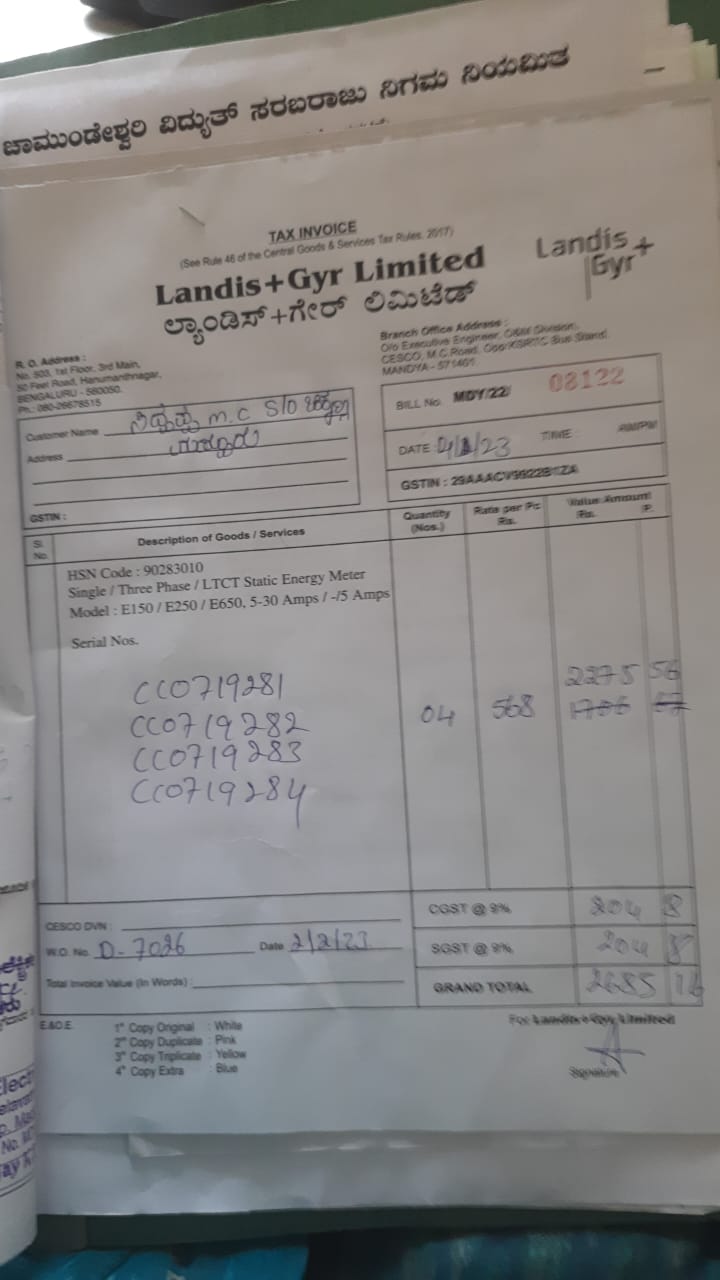 ಚಾಮುಂಡೇಶ್ವರಿ ವಿದ್ಯುತ್ ಸರಬರಾಜು ನಿಗಮ ನಿಯಮಿತ
TAX INVOICE
(See Rule 46 of the Central Goods & Services Tax Rules, 2017)
Landis+Gyr Limited
Landis
Gyr+
ಲ್ಯಾಂಡಿಸ್+ಗೇರ್ ಲಿಮಿಟೆಡ್
R. O. Address :
No. 503, 1st Floor, 3rd Main,
50 Feet Road, Hanumanthnagar,
BENGALURU - 560050.
Ph.: 080-26678515
Branch Office Address :
O/o Executive Engineer, O&M Division,
CESCO, M.C.Road, Opp.KSRTC Bus Stand
MANDYA - 571401.
Customer Name M.C S/O
Address
GSTIN :
BILL No. MDY/22/ 08122
DATE : /23 TIME : AM/PM
GSTIN :
Sl. No. Description of Goods / Services Quantity (Nos.) Rate per Pc Rs. Value Amount Rs. P.
HSN Code : 90283010
Single / Three Phase / LTCT Static Energy Meter
Model : E150 / E250 / E650, 5-30 Amps / -/5 Amps
Serial Nos.
CC0719281 2275 56
CC0719282 04 568
CC0719283
CC0719284
CGST @ 9% 204 8
CESCO DVN :
W.O. No. D-7026 Date 2/2/23 SGST @ 9% 204 8
Total Invoice Value (In Words) : GRAND TOTAL 2685 16
E.&O.E. 1st Copy Original : White
2nd Copy Duplicate : Pink
3rd Copy Triplicate : Yellow
4th Copy Extra : Blue
For Landis+Gyr Limited
Signature